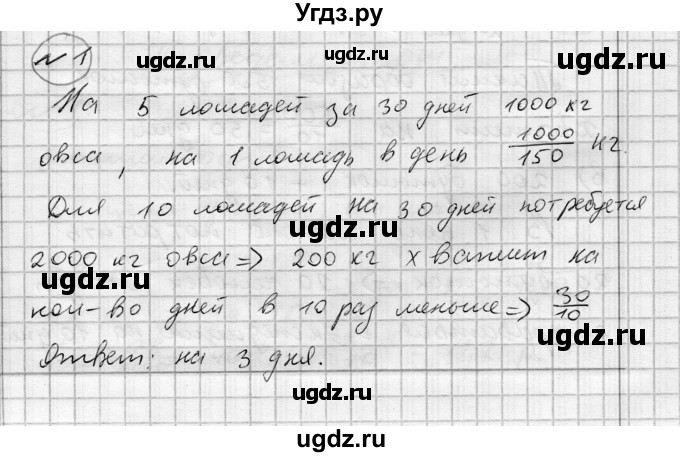 Угдз.ру
ugdz.ru ugdz.ru
№1
ugdz.ru
На 5 лошадей за 30 дней 1000 кг
овса, на 1 лошадь в день 1000/150 кг.
ugdz.ru ugdz.ru
Для 10 лошадей на 30 дней потребуется
ugdz.ru
2000 кг овса => 200 кг хватит на
ugdz.ru ugdz.ru
кол-во дней в 10 раз меньше => 30/10
ugdz.ru
Ответ: на 3 дня.
ugdz.ru ugdz.ru
ugdz.ru